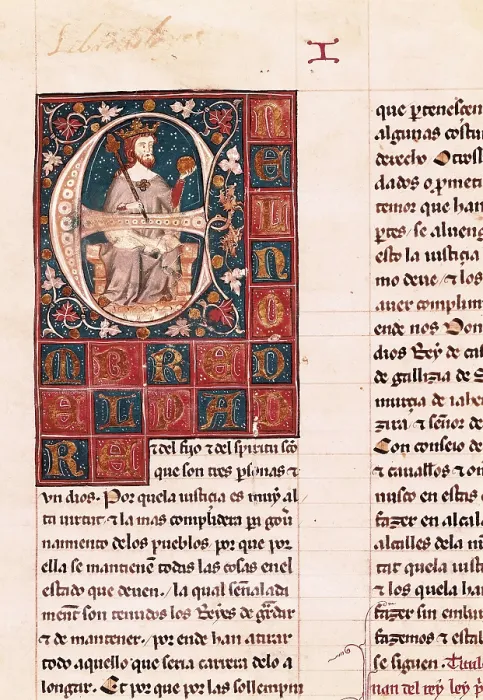 I
E
N
E
L
N
O
M B R E D
E L P A D
R E
⁊ del fijo ⁊ del spiritu sco
que son tres psonas ⁊
vn dios. Por quela iusticia es muy al
ta uirtut. ⁊ la mas complidera pa gou
namiento delos pueblos por que por
ella se mantienē todas las cosas enel
estado que deuen. / la qual señalada
ment son tenudos los Reyes de gdar
⁊ de mantener. / por ende han atirar
todo aquello que seria carrera delo a
longar. Et por que por las sollempni
que ptenesçen
algunas costu
derecho Otrossi
dados o pmeti
temor que han
ptes / se alueng
esto la iusticia
mo deue / ⁊ los
auer complim
ende nos Don
dios Rey de cas
de gallizia de S
murcia de iahen
zira / ⁊ señor de
Con conseio de
⁊ cauallos ⁊ om
nusco en estas
fazer en alcala
alcalles dela nr̄a
tat quela iusti
⁊ los quela han
fazer sin embar
fazemos ⁊ estab
se siguen. Titulo
iuan del rey